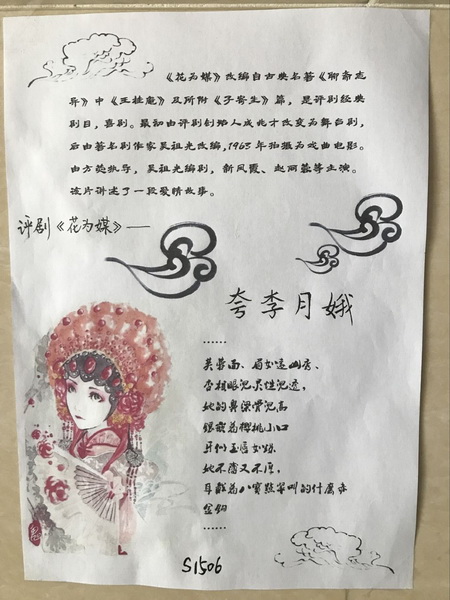 《花为媒》改编自古典名著《聊斋志
异》中《王桂庵》及所附《子寄生》篇，是评剧经典
剧目，喜剧。最初由评剧创始人成兆才改变为舞台剧，
后由著名剧作家吴祖光改编，1963年拍摄为戏曲电影。
由方荧执导，吴祖光编剧，新凤霞、赵丽蓉等主演。
该片讲述了一段爱情故事。
评剧《花为媒》——
夸李月娥
……
芙蓉面、眉如远山秀、
杏核眼灵性
她的鼻梁骨儿高
相衬着樱桃小口
牙似玉唇如珠
她不薄又不厚，
耳戴着八宝点翠叫的什么赤
金钩
……
S1506